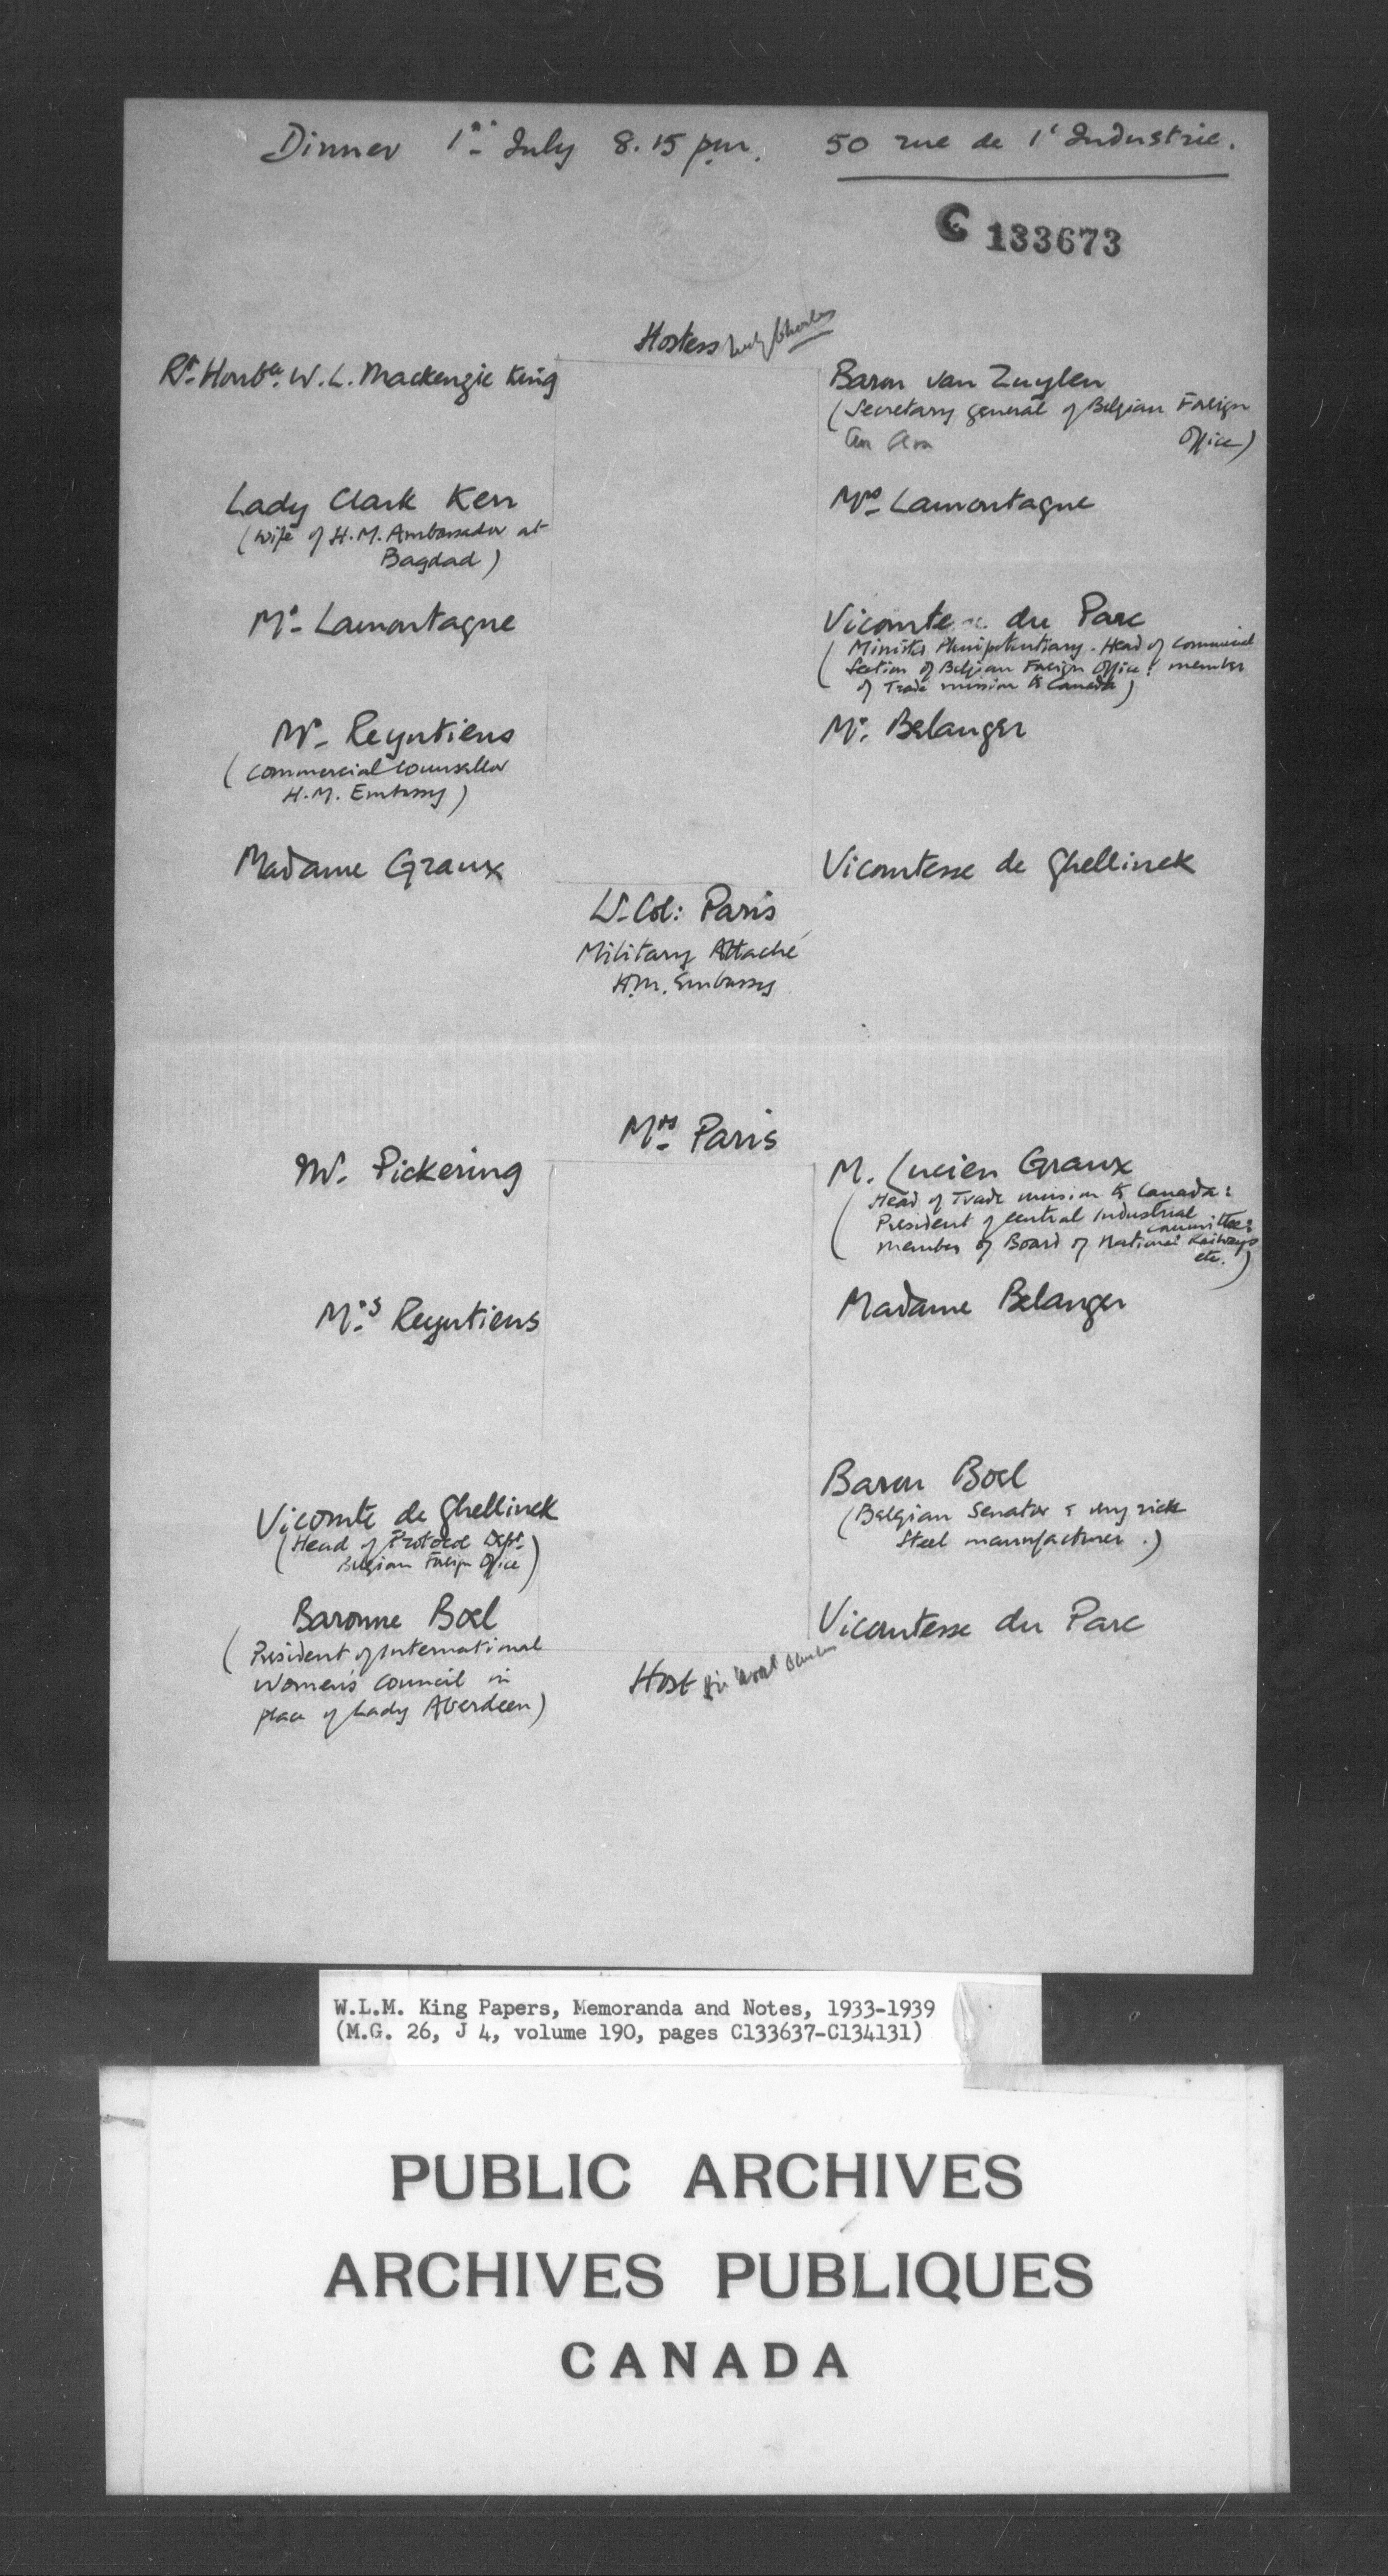 Dinner 1st July 8.15 p.m. 50 rue de l'Industrie.
C 133673
Hostess
Rt. Honble. W.L. Mackenzie King
Baron van Zuylen
(Secretary general of Belgian Foreign
Office)
Lady Clark Kerr
(wife of H.M. Ambassador at
Bagdad)
Mrs Lamontagne
Mr Lamontagne
Vicomte du Parc
(Minister Plenipotentiary. Head of Commercial
Section of Belgian Foreign Office: member
of Trade mission to Canada)
Mr Reyntiens
(Commercial Counsellor
H.M. Embassy)
Mr. Belanger
Madame Graux
Vicomtesse de Ghellinck
Lt-Col: Paris
Military Attaché
H.M. Embassy
Mrs Paris
Mr. Pickering
M. Lucien Graux
(Head of Trade mission to Canada:
President of Central Industrial
Committee:
member of Board of National Railways
etc.)
Mrs Reyntiens
Madame Belanger
Baron Boel
(Belgian Senator & very rich
Steel manufacturer.)
Vicomte de Ghellinck
(Head of Protocol Dept.
Belgian Foreign Office)
Baronne Boel
(President of International
Women's Council in
place of Lady Aberdeen)
Vicomtesse du Parc
Host
W.L.M. King Papers, Memoranda and Notes, 1933-1939
(M.G. 26, J 4, volume 190, pages C133637-C134131)
PUBLIC ARCHIVES
ARCHIVES PUBLIQUES
CANADA